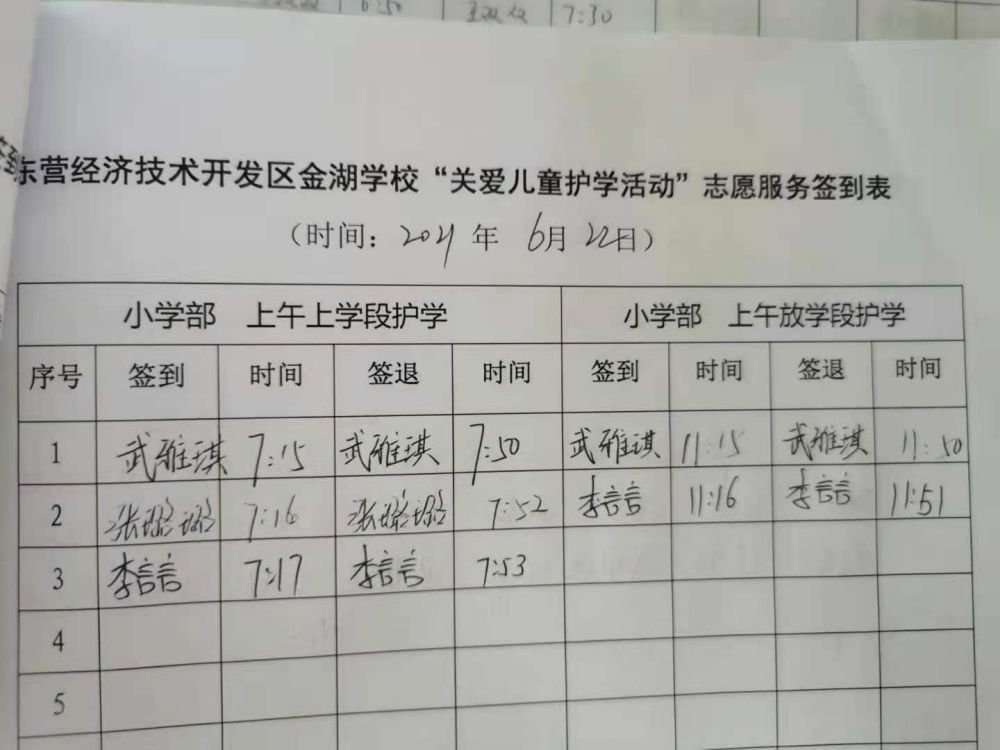 6:50 7:30
签到
东营经济技术开发区金湖学校“关爱儿童护学活动”志愿服务签到表
（时间：2021年 6月22日）
小学部 上午上学段护学 小学部 上午放学段护学
序号 签到 时间 签退 时间 签到 时间 签退 时间
1 武雅琪 7:15 武雅琪 7:50 武雅琪 11:15 武雅琪 11:50
2 张璐璐 7:16 张璐璐 7:52 李言言 11:16 李言言 11:51
3 李言言 7:17 李言言 7:53
4
5